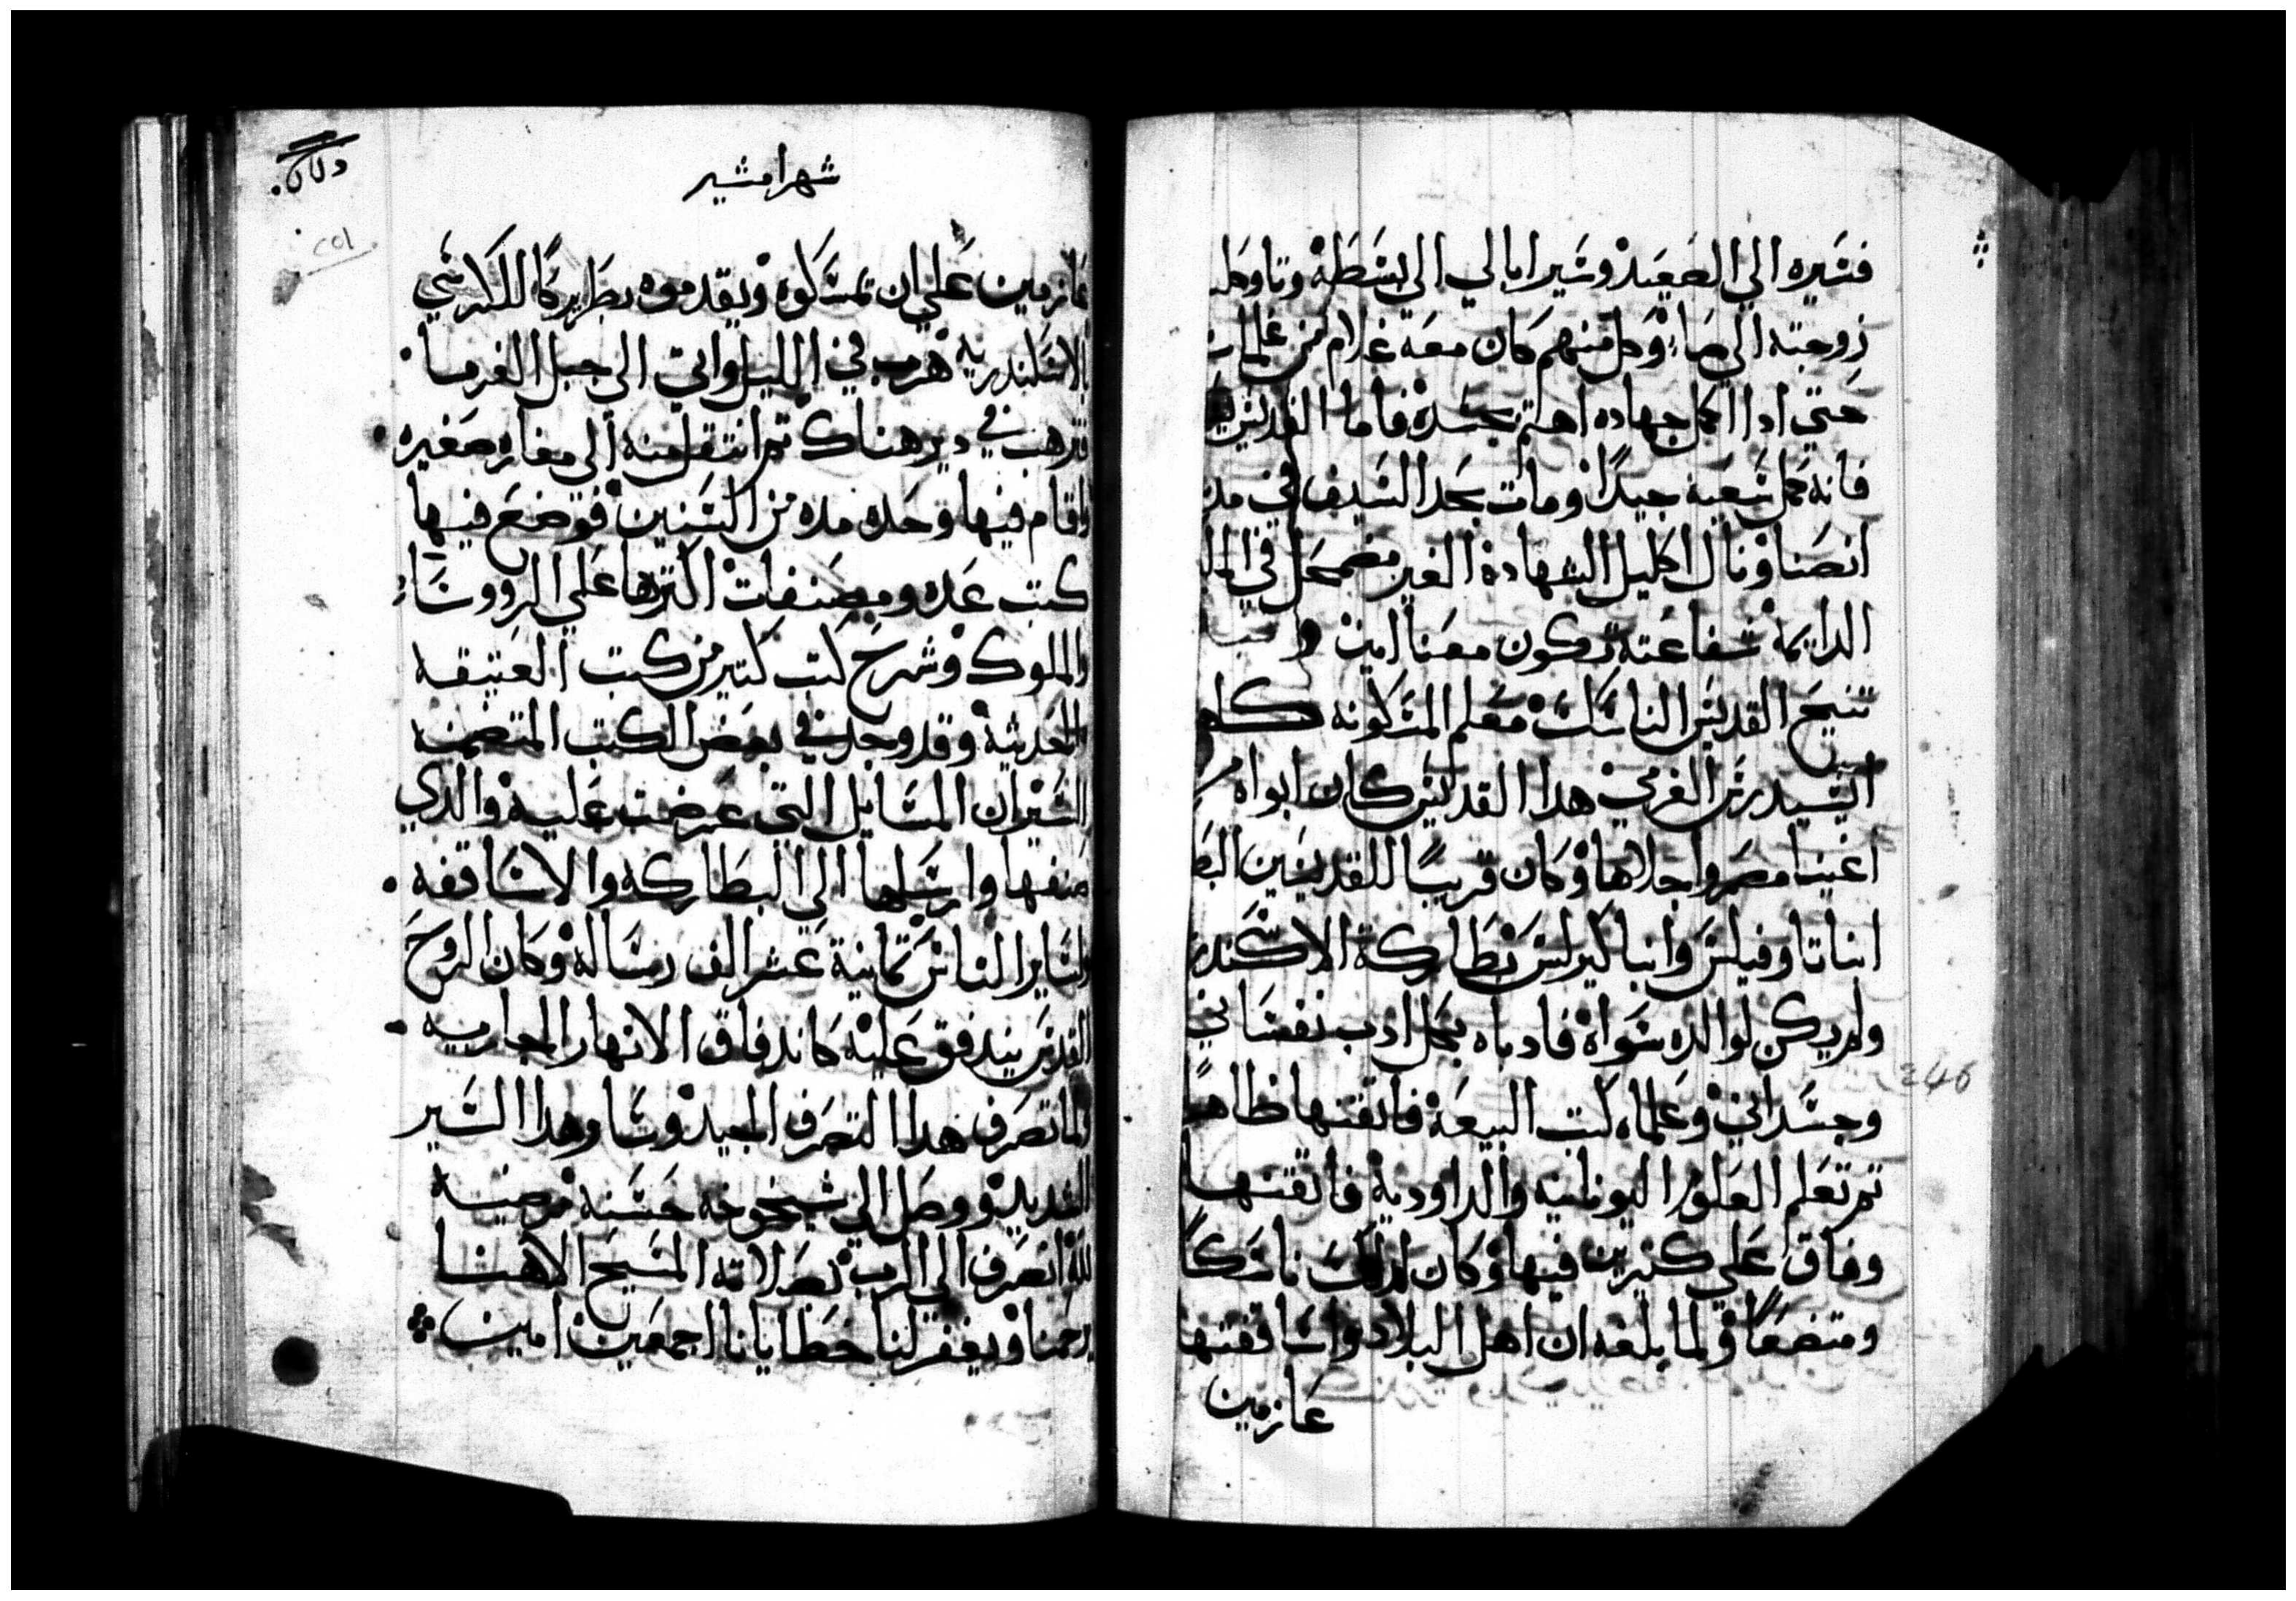 فسيره الي الصعيد وسير ابالي الي بسطة وتاوكلا
زوجته الي صا وكل منهم كان معه غلام من غلمان
حتي ادا اكمل جهاده اهتم بجسده فاما القديس
فانه كمل سعيه جيدا ومات بحد السيف في مدينة
انصنا ونال اكليل الشهادة الغير مضمحل في
الدايمة شفاعته تكون معنا امين
تنيح القديس الناسك معلم المسكونه كلها
ايسيدرس الفرمي هدا القديس كان ابواه
اغنيا مصر واجلاها وكان قريبا للقديسين
انبا تاوفيلس وانبا كيرلس بطاركة الاسكندرية
ولم يكن لوالده سواه فادباه بكل ادب نفساني
وجسداني وعلماه كتب البيعة فاتقنها ظاهرا
تم تعلم العلوم اليونانيه والداودية فاتقنها
وفاق علي كثيرين فيها وكان ناسكا
ومتضعا ولما بلغه ان اهل البلاد واساقفتها
عازمين
شهر امشير
٢٥١
عازمين علي ان تمسكوه ويقدموه بطريركا للكرسي
الاسكندريه هرب في الليل واتي الي جبل الفرما
فترهب في دير هناك تم انتقل منه الي مغاره صغيره
واقام فيها وحده مده من السنين فوضع فيها
كتب عده ومصنفات اكترها علي الرووساء
والملوك وشرح كتب كتير من كتب العتيقه
والحديثة وقد وجد في بعض الكتب المتضمنه
السير ان المسايل التي عرضت عليه والدي
صنفها وارسلها الي البطاركه والاساقفه
ولساير الناس تمانية عشر الف رسالة وكان الروح
القدس يتدفق عليه كاندفاق الانهار الجاريه
ولما تصرف هدا التصرف الجيد وسار هدا السير
السديد ووصل الي شيخوخه حسنة مرضية
لله انصرف الي الرب بصلاته المسيح الاهنا
يرحمنا ويغفر لنا خطايانا اجمعين امين
246